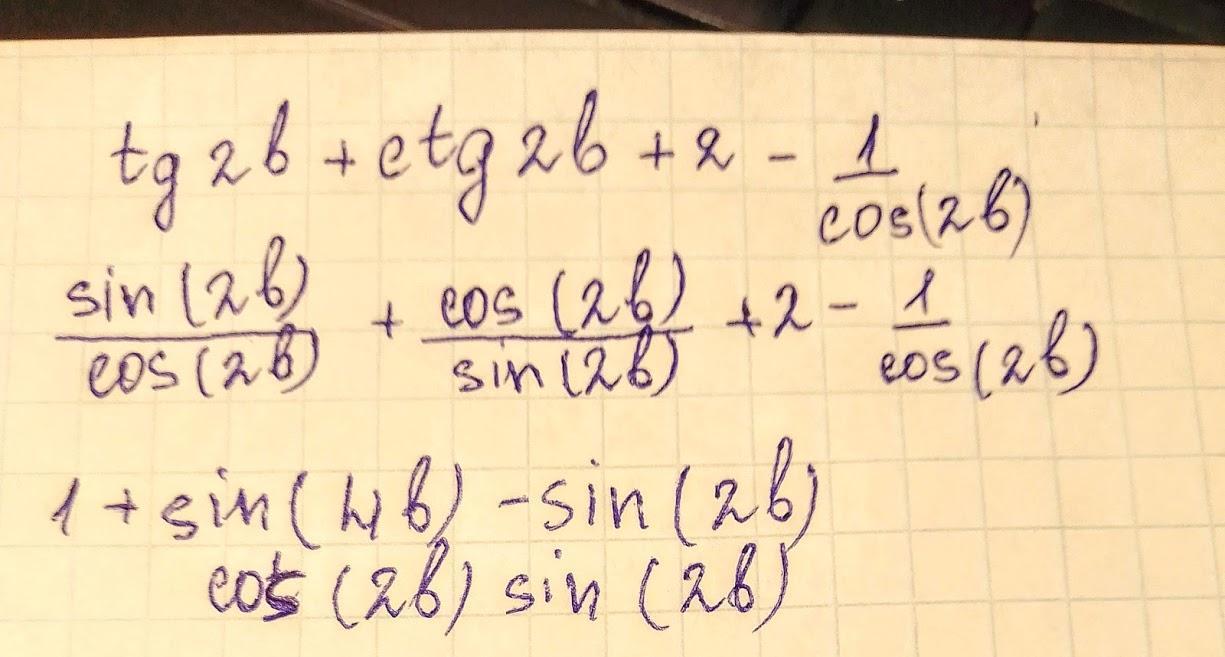 tg 2b + ctg 2b + 2 - 1/cos(2b)
sin(2b)/cos(2b) + cos(2b)/sin(2b) + 2 - 1/cos(2b)
1 + sin(4b) - sin(2b)
cos(2b) sin(2b)